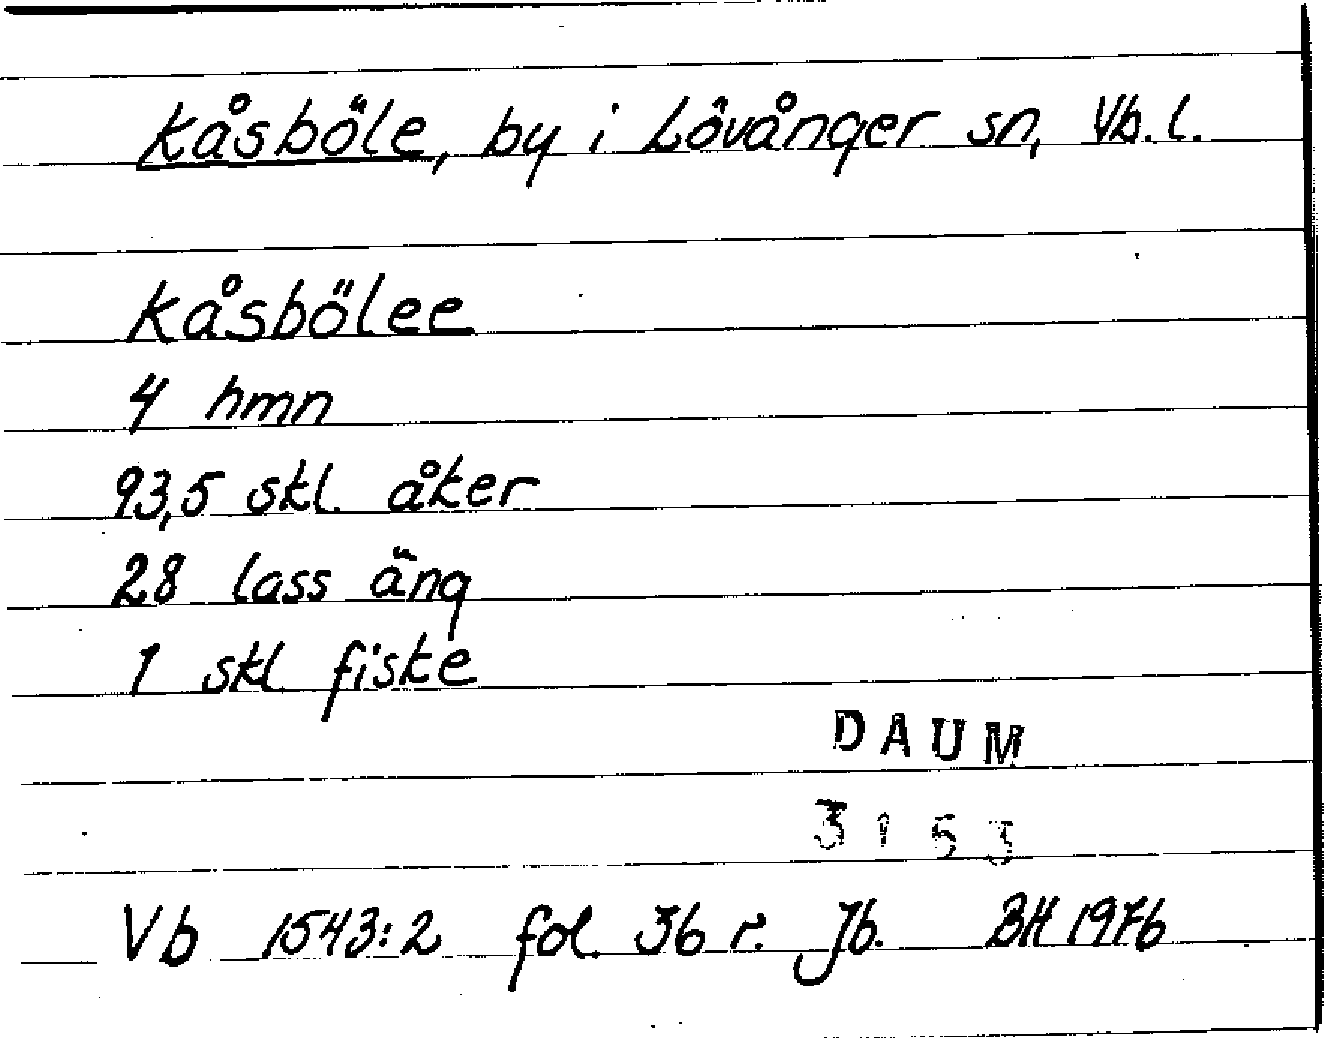 Kåsböle, by i Lövånger sn, Vb. l.
Kåsbölee
4 hmn
93,5 skl. åker
28 lass äng
1 skl fiske
DAUM
3153
Vb 1543:2 fol. 36 r. Jb. BH 1976